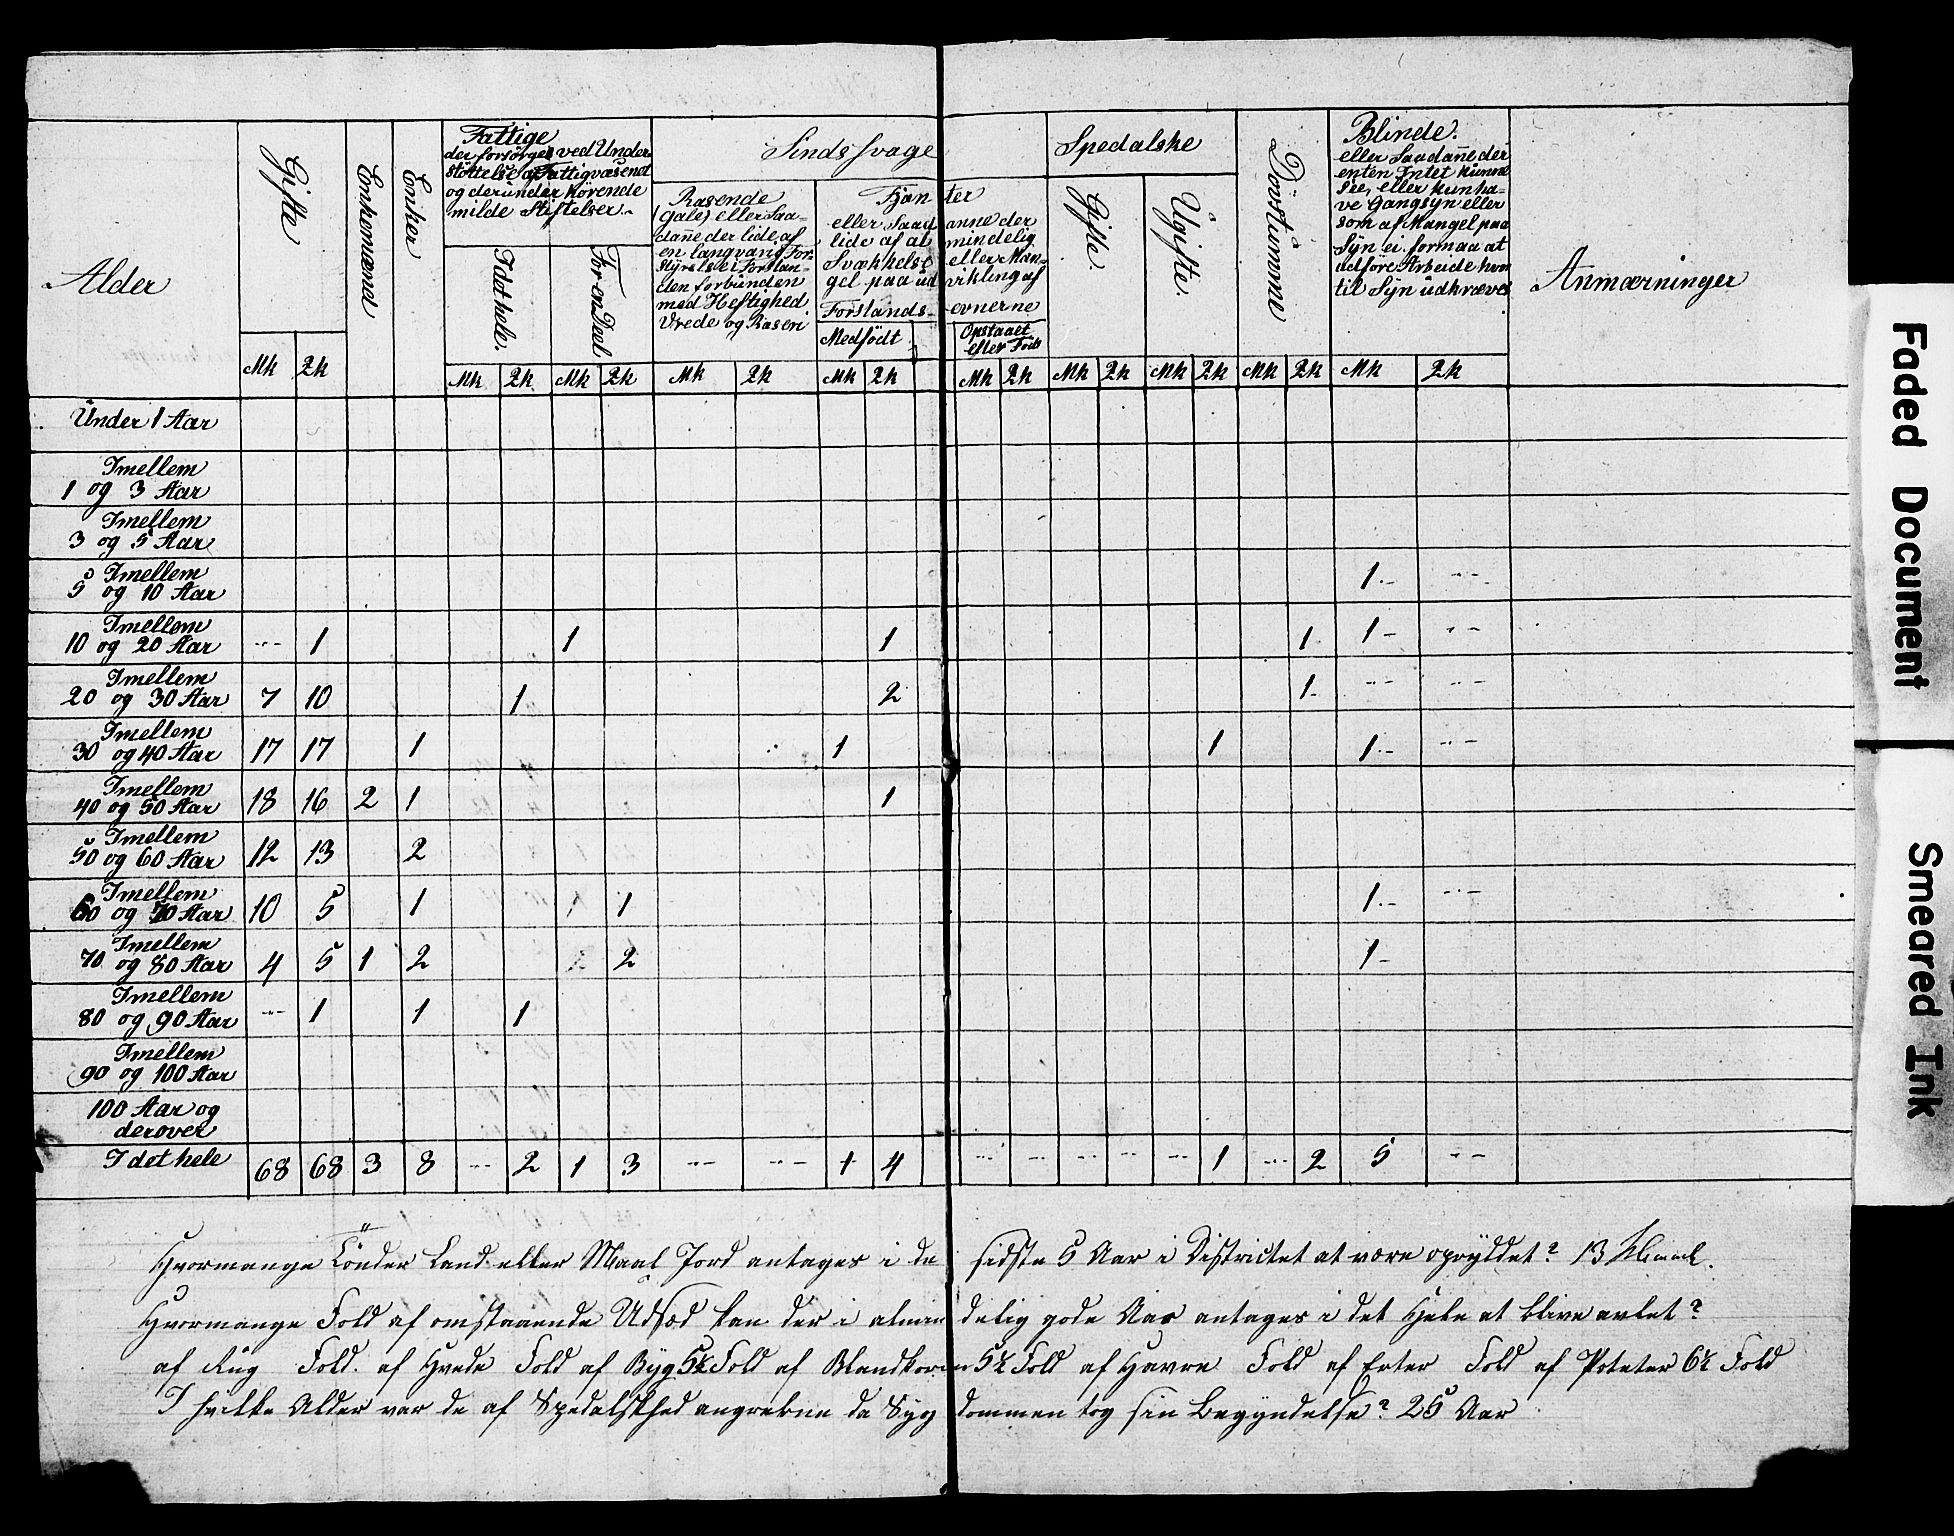 Alder
Gifte
Enkemænd
Enker
Fattige
der forsørges ved Under-
støttelse af Fattigvæsenet
og derunder hørende
milde Stiftelser.
I det hele.
For en Deel
Sindssvage
Rasende
(gale) eller Saa-
danne der lide af
en langvarig For-
styrelse i Forstan-
den forbunden
med Heftighed
Vrede og Raseri
Fjanter
eller Saadanne der
lide af almindelig
Svækkelse eller Man-
gel paa udvikling af
Forstands- evnerne
Medfödt
Opstaaet
efter Föds
Spedalske
Gifte.
Ugifte.
Dövstumme
Blinde.
eller Saadanne der
enten Intet kunne
see, eller kun ha-
ve Gangsyn eller
som af Mangel paa
Syn ei formaa at
udföre Arbeide hvor
til Syn udkræves
Anmærninger
Mk 2k Mk 2k Mk 2k Mk 2k Mk 2k Mk 2k Mk 2k Mk 2k Mk 2k Mk 2k
Under 1 Aar
Imellem
1 og 3 Aar
Imellem
3 og 5 Aar
Imellem
5 og 10 Aar 1.- --
Imellem
10 og 20 Aar -- 1 1 1 1 1- --
Imellem
20 og 30 Aar 7 10 1 2 1. -- --
Imellem
30 og 40 Aar 17 17 1 1 1 1.- --
Imellem
40 og 50 Aar 18 16 2 1 1
Imellem
50 og 60 Aar 12 13 2
Imellem
60 og 70 Aar 10 5 1 1 1.- --
Imellem
70 og 80 Aar 4 5 1 2 2 1-
Imellem
80 og 90 Aar -- 1 1 1
Imellem
90 og 100 Aar
100 Aar og
derover
I det hele 68 68 3 8 -- 2 1 3 -- -- 1 4 -- -- -- -- -- 1 -- 2 5 --
Hvormange Tönder Land eller Maal Jord antages i de sidste 5 Aar i Districtet at være opryddet? 13 Maal.
Hvormange Fold af omstaaende Udsæd kan der i almindelig gode Aar antages i det Hele at blive avlet?
af Rug Fold. af Hvede Fold af Byg 5½ Fold af Blandkorn 5½ Fold af Havre Fold af Erter Fold af Poteter 6½ Fold
I hvilke Alder var de af Spedalskhed angrebne da Sygdommen tog sin Begyndelse? 25 Aar
Faded Document
Smeared Ink